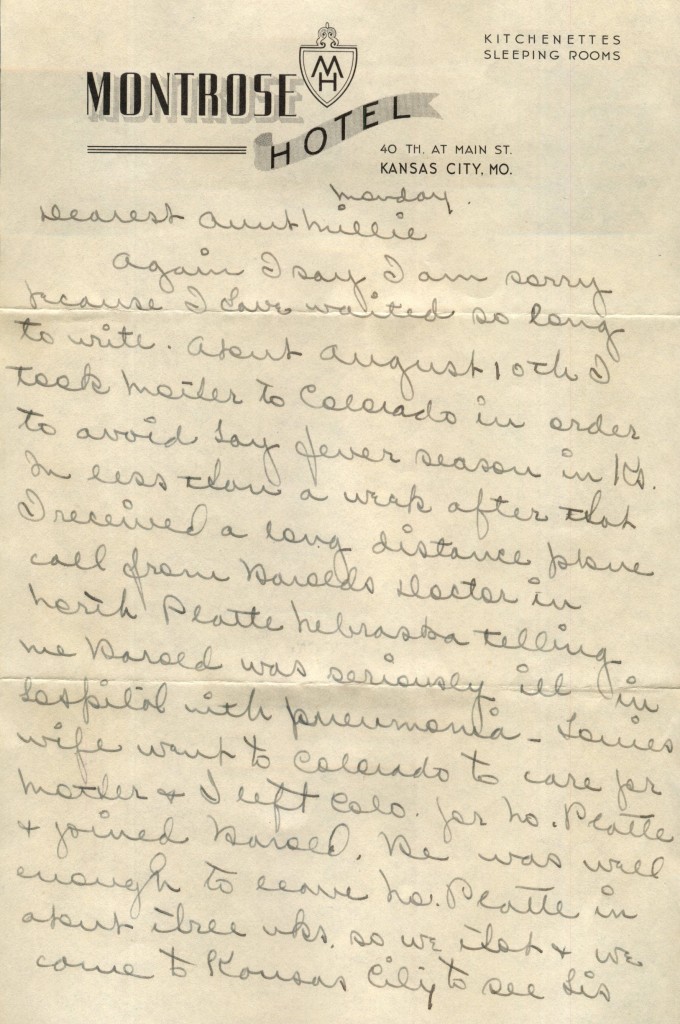 KITCHENETTES
SLEEPING ROOMS
MH
MONTROSE
HOTEL
40 TH. AT MAIN ST.
KANSAS CITY, MO.
Monday.
Dearest Aunt Millie
Again I say I am sorry
because I have waited so long
to write. About August 10th I
took Mother to Colorado in order
to avoid hay fever season in Ks.
In less than a week after that
I received a long distance phone
call from Harolds Doctor in
North Platte Nebraska telling
me Harold was seriously ill in
hospital with pneumonia - Louies
wife went to Colorado to care for
Mother & I left Colo. for No. Platte
& joined Harold. He was well
enough to leave No. Platte in
about three wks. so we that & we
come to Kansas City to see his